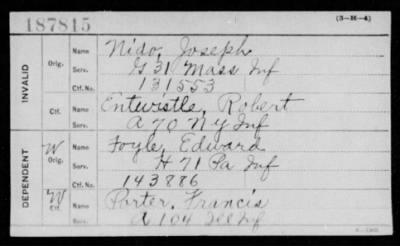 187815
(3-36-4)
INVALID
Orig.
Name Nido, Joseph
Serv. G 31 Mass Inf
Ctf. No. 131553
Ctf.
Name Entwistle, Robert
Serv. A 70 N Y Inf
DEPENDENT
W Orig.
Name Foyle, Edward
Serv. H 71 Pa Inf
Ctf. No. 143886
W Ctf.
Name Porter, Francis
Serv. A 104 Ill Inf